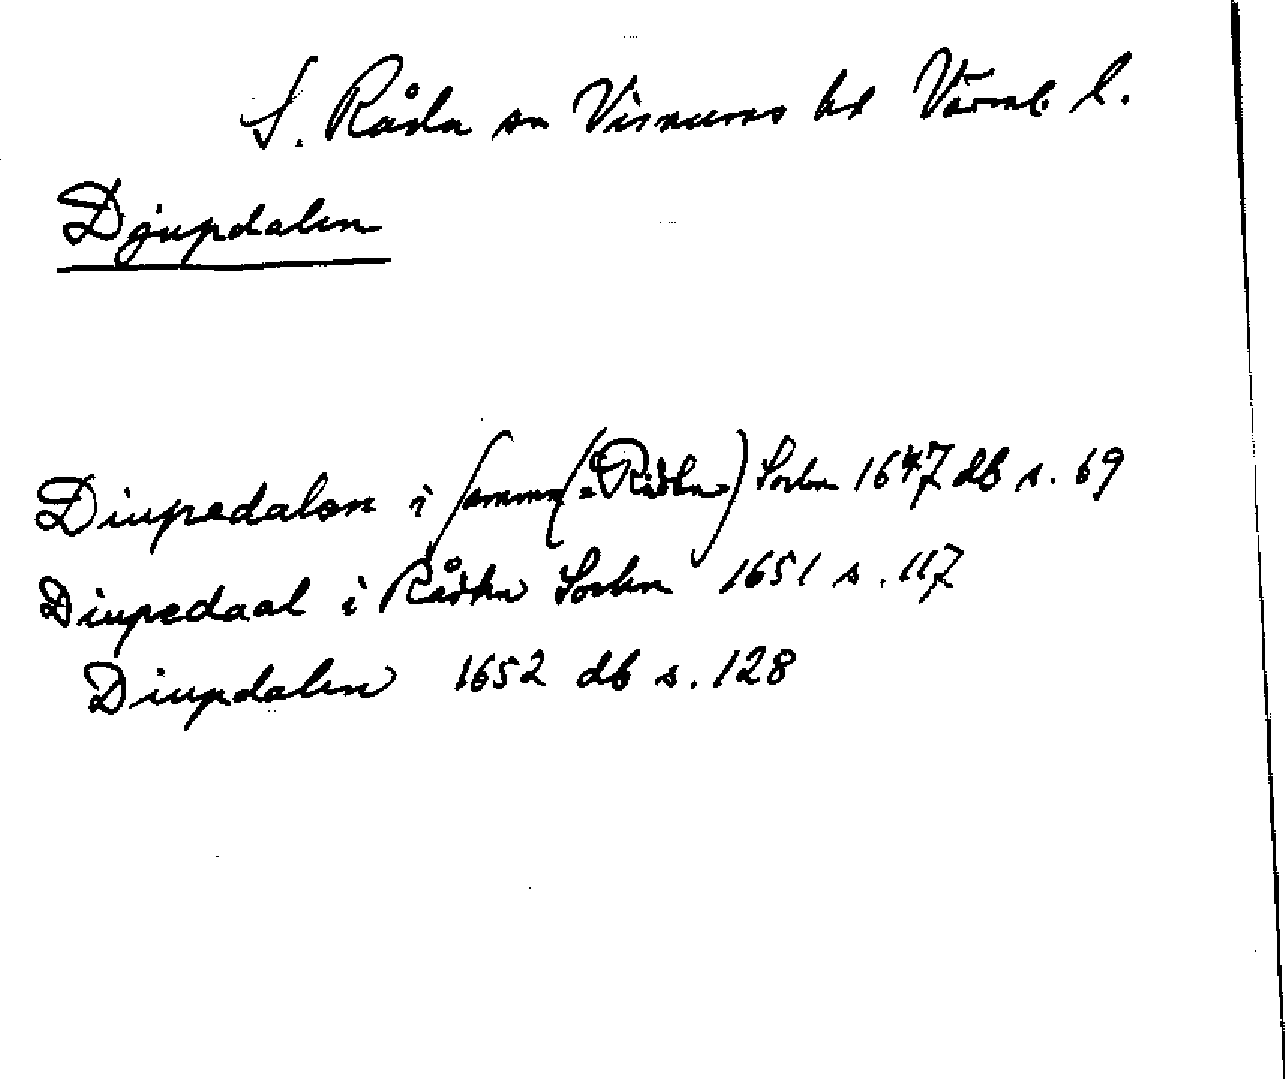 S. Råda sn Visnums hd Värml. l.
Djupdalen
Diupedalen i samma (= Råda) Sochn 1647 db s. 69
Diupedaal i Råda Sochn 1651 s. 117
Diupdalen 1652 db s. 128